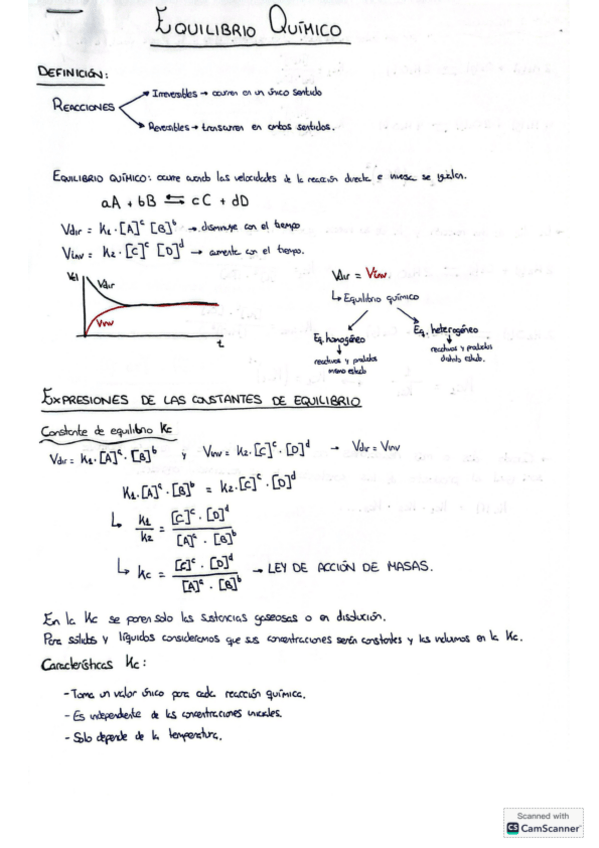 EQUILIBRIO QUÍMICO
DEFINICIÓN:
REACCIONES
Irreversibles → ocurren en un único sentido
Reversibles → transcurren en ambos sentidos.
EQUILIBRIO QUÍMICO: ocurre cuando las velocidades de la reacción directa e inversa se igualan.
aA + bB ⇆ cC + dD
Vdir = K1 · [A]ᵃ [B]ᵇ → disminuye con el tiempo
Vinv = K2 · [C]ᶜ [D]ᵈ → aumenta con el tiempo.
Vel
Vdir
Vinv
t
Vdir = Vinv
↳ Equilibrio químico
Eq. homogéneo
reactivos y productos
mismo estado
Eq. heterogéneo
reactivos y productos
distinto estado.
EXPRESIONES DE LAS CONSTANTES DE EQUILIBRIO
Constante de equilibrio Kc
Vdir = K1 · [A]ᵃ · [B]ᵇ y Vinv = K2 · [C]ᶜ · [D]ᵈ → Vdir = Vinv
K1 · [A]ᵃ · [B]ᵇ = K2 · [C]ᶜ · [D]ᵈ
↳ K1/K2 = [C]ᶜ · [D]ᵈ / [A]ᵃ · [B]ᵇ
↳ Kc = [C]ᶜ · [D]ᵈ / [A]ᵃ · [B]ᵇ → LEY DE ACCIÓN DE MASAS.
En la Kc se ponen solo las sustancias gaseosas o en disolución.
Para sólidos y líquidos consideramos que sus concentraciones serán constantes y las incluimos en la Kc.
Características Kc:
- Toma un valor único para cada reacción química.
- Es independiente de las concentraciones iniciales.
- Solo depende de la temperatura.
Scanned with
CS CamScanner